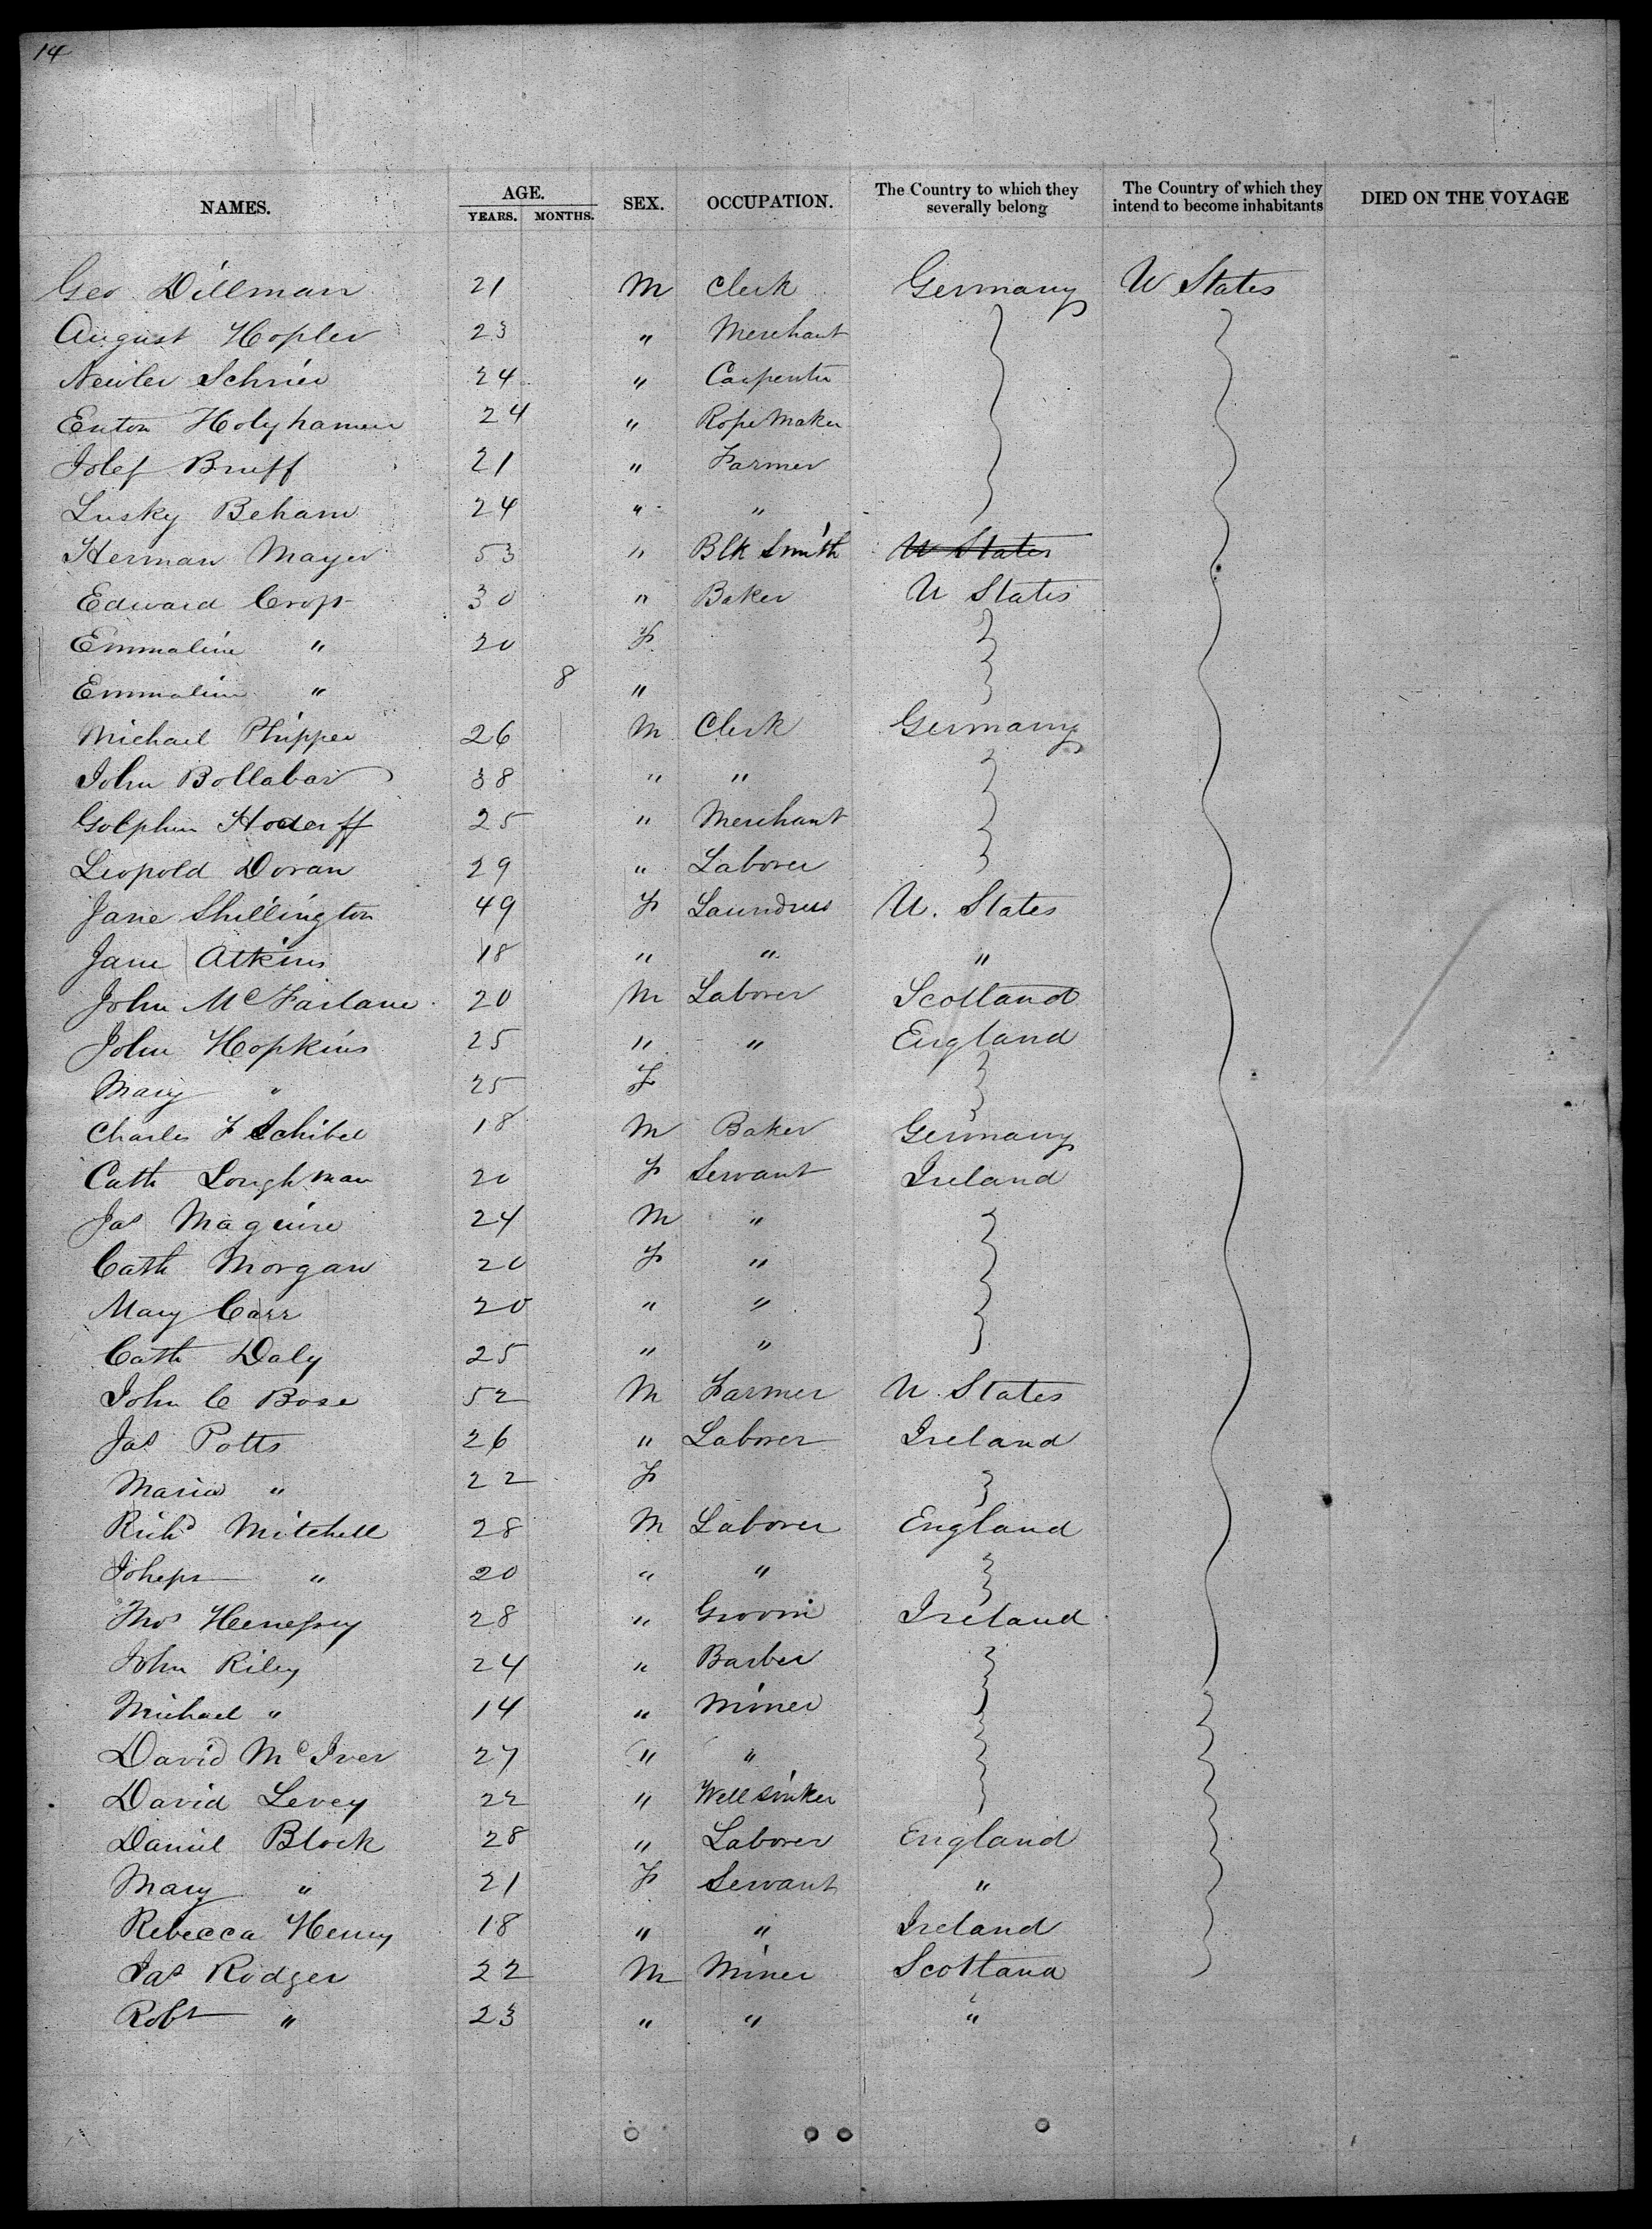 14
NAMES. AGE. YEARS. MONTHS. SEX. OCCUPATION. The Country to which they severally belong The Country of which they intend to become inhabitants DIED ON THE VOYAGE
Geo Dillman 21 M Clerk Germany U States
August Hopler 23 " Merchant
Schrier 24 " Carpenter
Enton Holyhamer 24 " Rope Maker
Josef Bruff 21 " Farmer
Lusky Beham 24 " "
Herman Mayer 53 " Blk Smith U States
Edward Crops 30 " Baker U States
Emmaline " 20 F
Emmaline " 8 "
Michael Phipper 26 M Clerk Germany
John Bollabar 38 " "
Golphin Hoderff 25 " Merchant
Leopold Doran 29 " Laborer
Jane Shillington 49 F Laundress U. States
Jane Atkins 18 " " "
John McFarlane 20 M Laborer Scotland
John Hopkins 25 " " England
Mary " 25 F
Charles F Schibel 18 M Baker Germany
Cath Loughman 20 F Servant Ireland
Jas Maguire 24 M "
Cath Morgan 20 F "
Mary Carr 20 " "
Cath Daly 25 " "
John C Bose 52 M Farmer U. States
Jas Potts 26 " Laborer Ireland
Maria " 22 F
Richd Mitchell 28 M Laborer England
Joheps " 20 " "
Thos Henessy 28 " Groom Ireland
John Riley 24 " Barber
Michael " 14 " Miner
David McIver 27 " "
David Levey 22 " Well sinker
Daniel Block 28 " Laborer England
Mary " 21 F Servant "
Rebecca Henry 18 " " Ireland
Jas Rodger 22 M Miner Scotland
Robt " 23 " " "